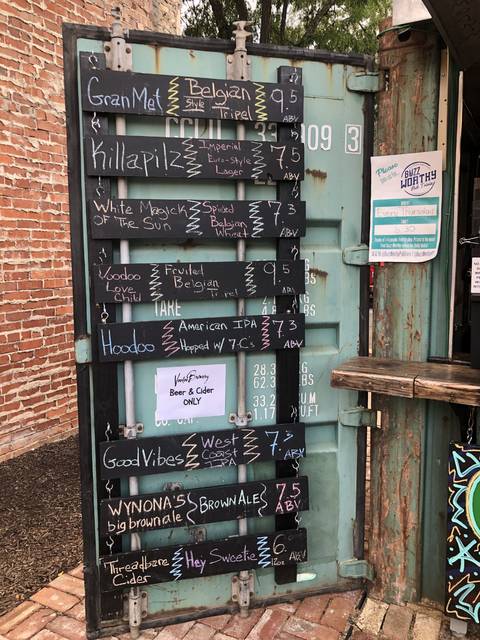 GranMet Belgian Style Tripel 9.5 ABV
Killapilz Imperial Euro-Style Lager 7.5 ABV
White Magick Of The Sun Spiced Belgian Wheat 7.3 ABV
Voodoo Love Child Fruited Belgian Tripel 9.5 ABV
Hoodoo American IPA Hopped w/ 7-C's 7.3 ABV
TARE
Voodoo Brewery
Beer & Cider
ONLY
28.3
62.3
33.2
1.17
Good Vibes West Coast IPA 7.3 ABV
WYNONA'S big brown ale BROWN ALE 7.5 ABV
Threadbare Cider Hey Sweetie 6. 12oz ABV
Please
BUZZ
WORTHY
Every Thursday
6:30